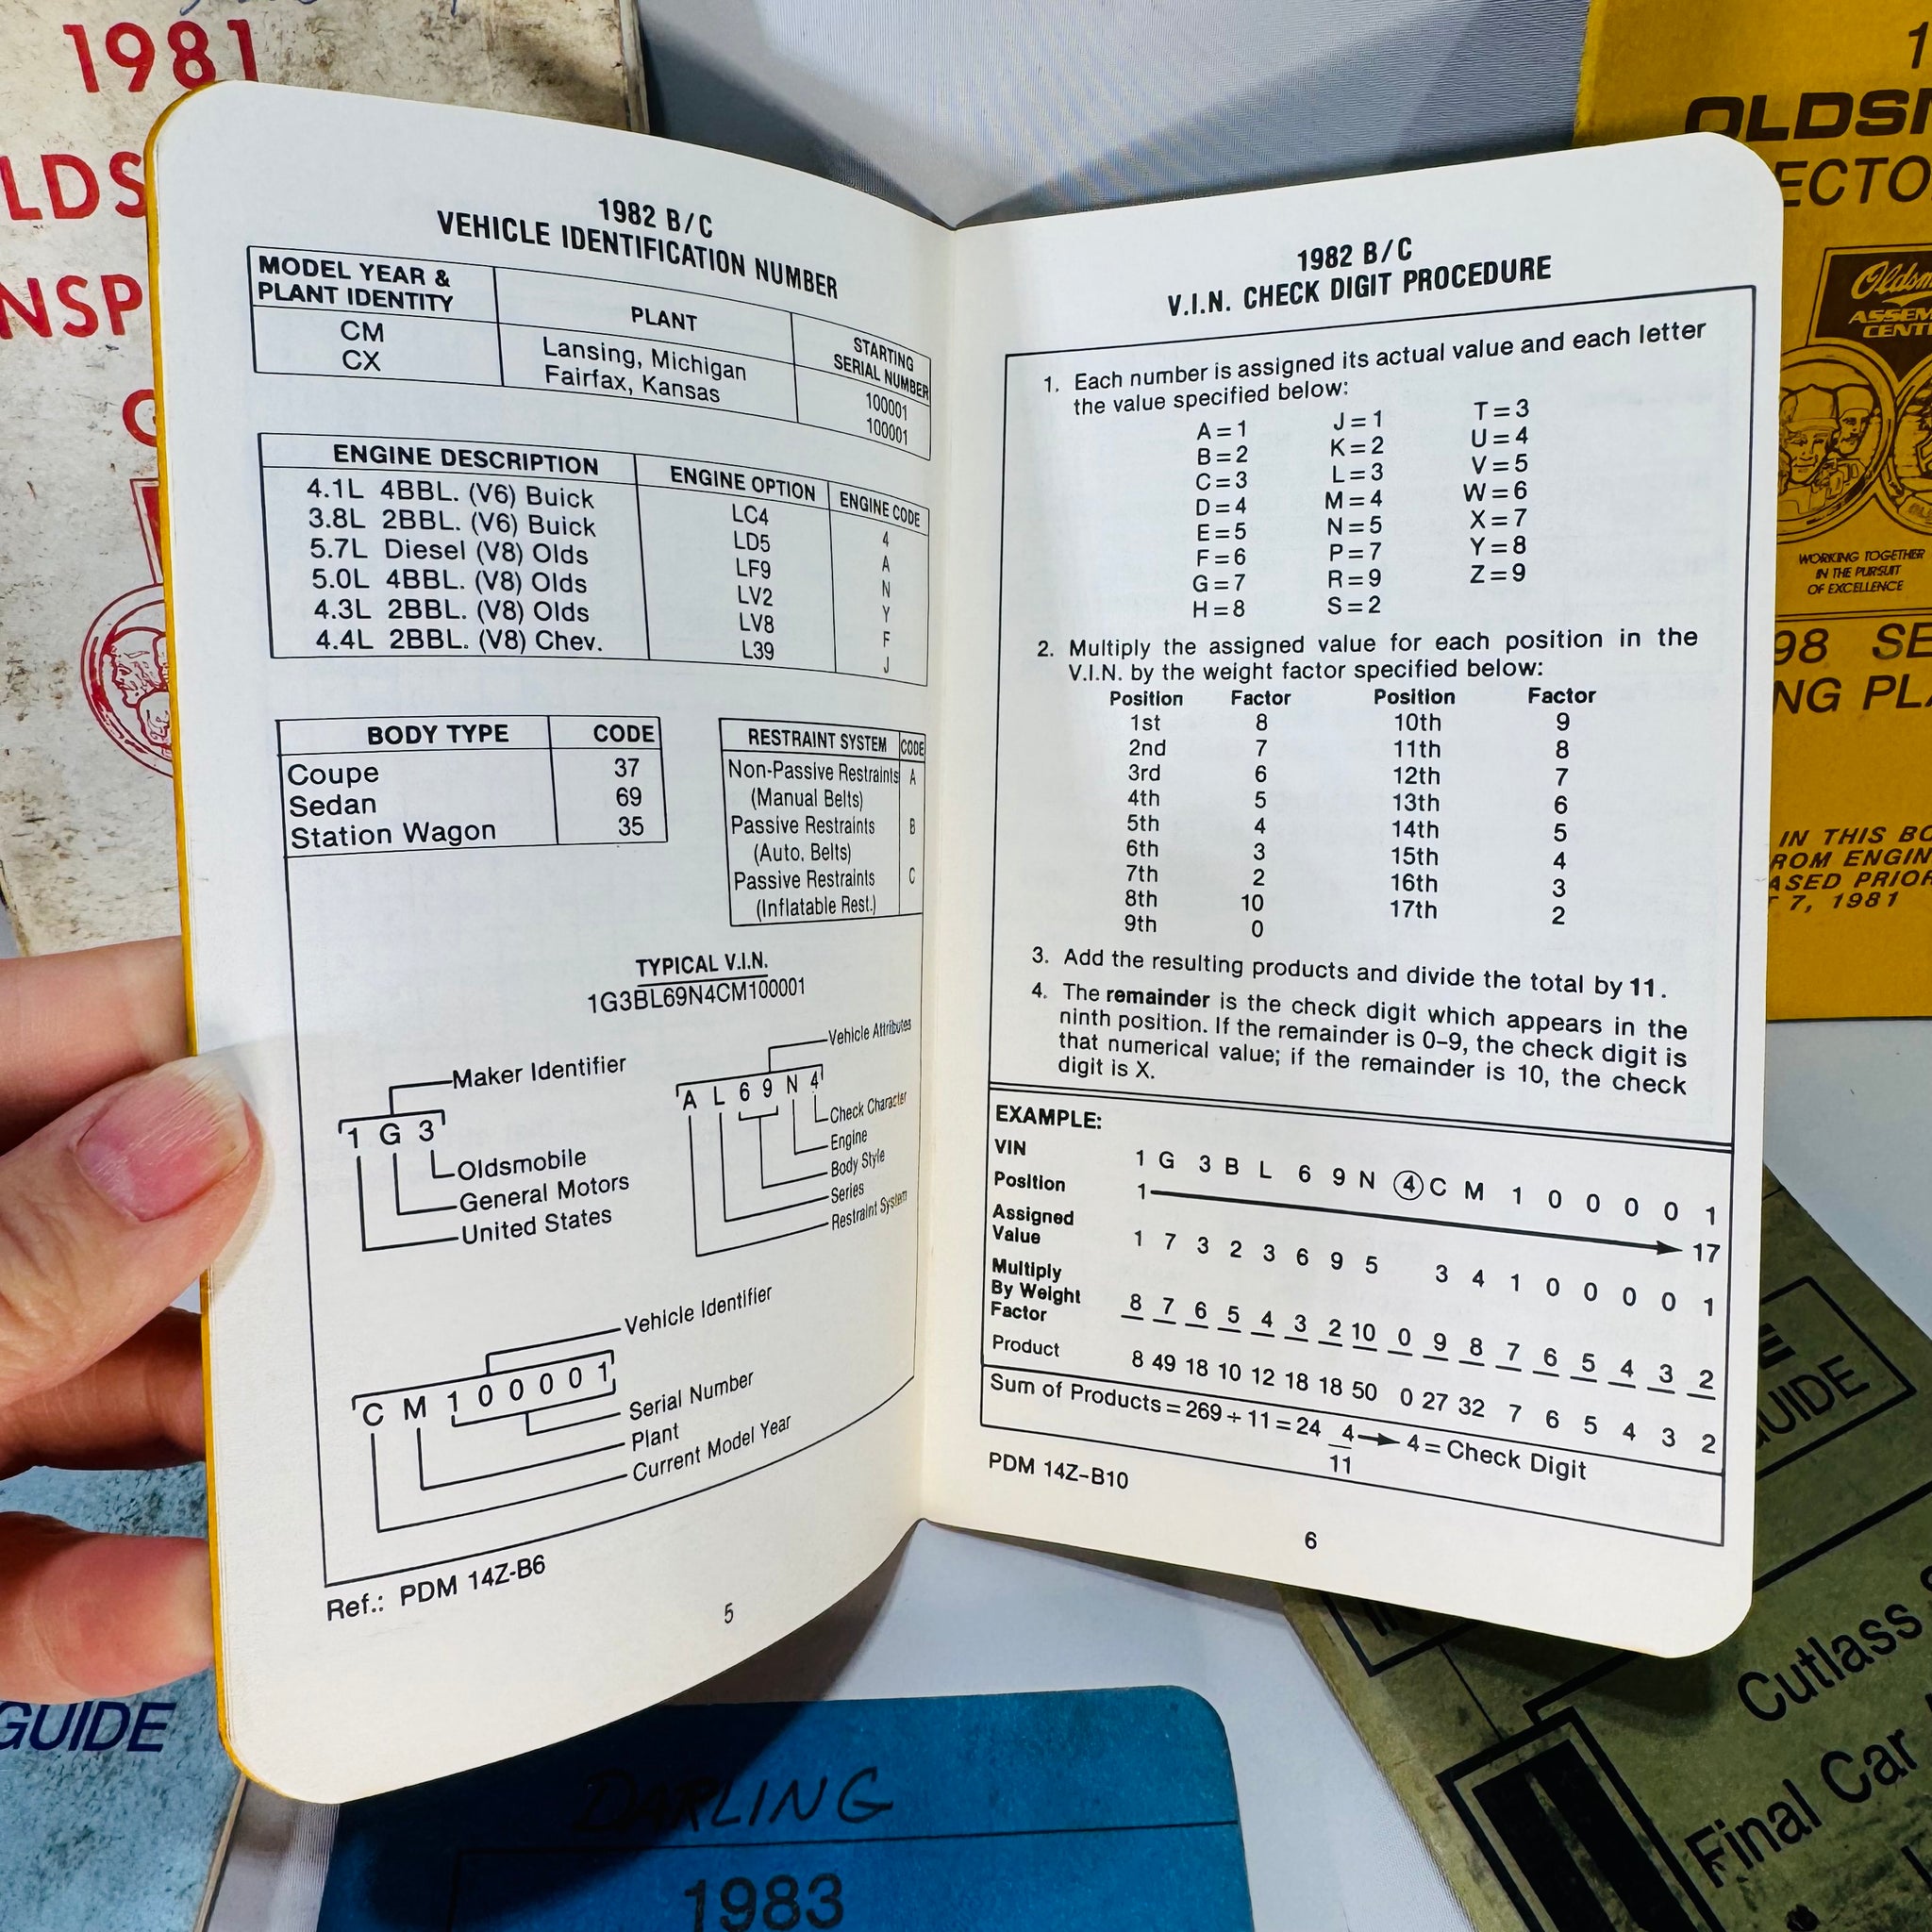 1981
LDS
NSP
G
1982 B/C
VEHICLE IDENTIFICATION NUMBER
MODEL YEAR & PLANT IDENTITY PLANT STARTING SERIAL NUMBER
CM Lansing, Michigan 100001
CX Fairfax, Kansas 100001
ENGINE DESCRIPTION ENGINE OPTION ENGINE CODE
4.1L 4BBL. (V6) Buick LC4 4
3.8L 2BBL. (V6) Buick LD5 A
5.7L Diesel (V8) Olds LF9 N
5.0L 4BBL. (V8) Olds LV2 Y
4.3L 2BBL. (V8) Olds LV8 F
4.4L 2BBL. (V8) Chev. L39 J
BODY TYPE CODE
Coupe 37
Sedan 69
Station Wagon 35
RESTRAINT SYSTEM CODE
Non-Passive Restraints A
(Manual Belts)
Passive Restraints B
(Auto. Belts)
Passive Restraints C
(Inflatable Rest.)
TYPICAL V.I.N.
1G3BL69N4CM100001
Maker Identifier
1 G 3
Oldsmobile
General Motors
United States
Vehicle Attributes
A L 6 9 N 4
Check Character
Engine
Body Style
Series
Restraint System
Vehicle Identifier
C M 1 0 0 0 0 1
Serial Number
Plant
Current Model Year
Ref.: PDM 14Z-B6
5
1982 B/C
V.I.N. CHECK DIGIT PROCEDURE
1. Each number is assigned its actual value and each letter
the value specified below:
A=1 J=1 T=3
B=2 K=2 U=4
C=3 L=3 V=5
D=4 M=4 W=6
E=5 N=5 X=7
F=6 P=7 Y=8
G=7 R=9 Z=9
H=8 S=2
2. Multiply the assigned value for each position in the
V.I.N. by the weight factor specified below:
Position Factor Position Factor
1st 8 10th 9
2nd 7 11th 8
3rd 6 12th 7
4th 5 13th 6
5th 4 14th 5
6th 3 15th 4
7th 2 16th 3
8th 10 17th 2
9th 0
3. Add the resulting products and divide the total by 11.
4. The remainder is the check digit which appears in the
ninth position. If the remainder is 0-9, the check digit is
that numerical value; if the remainder is 10, the check
digit is X.
EXAMPLE:
VIN 1 G 3 B L 6 9 N 4 C M 1 0 0 0 0 1
Position 1 17
Assigned Value 1 7 3 2 3 6 9 5 3 4 1 0 0 0 0 1
Multiply By Weight Factor 8 7 6 5 4 3 2 10 0 9 8 7 6 5 4 3 2
Product 8 49 18 10 12 18 18 50 0 27 32 7 6 5 4 3 2
Sum of Products = 269 ÷ 11 = 24 4/11 4 = Check Digit
PDM 14Z-B10
6
1
OLDSM
ECTO
Oldsm
ASSEM
CENT
WORKING TOGETHER
IN THE PURSUIT
OF EXCELLENCE
98 SE
NG PLA
IN THIS BO
ROM ENGIN
ASED PRIOR
T 7, 1981
GUIDE
DARLING
1983
E
GUIDE
Cutlass
Final Car